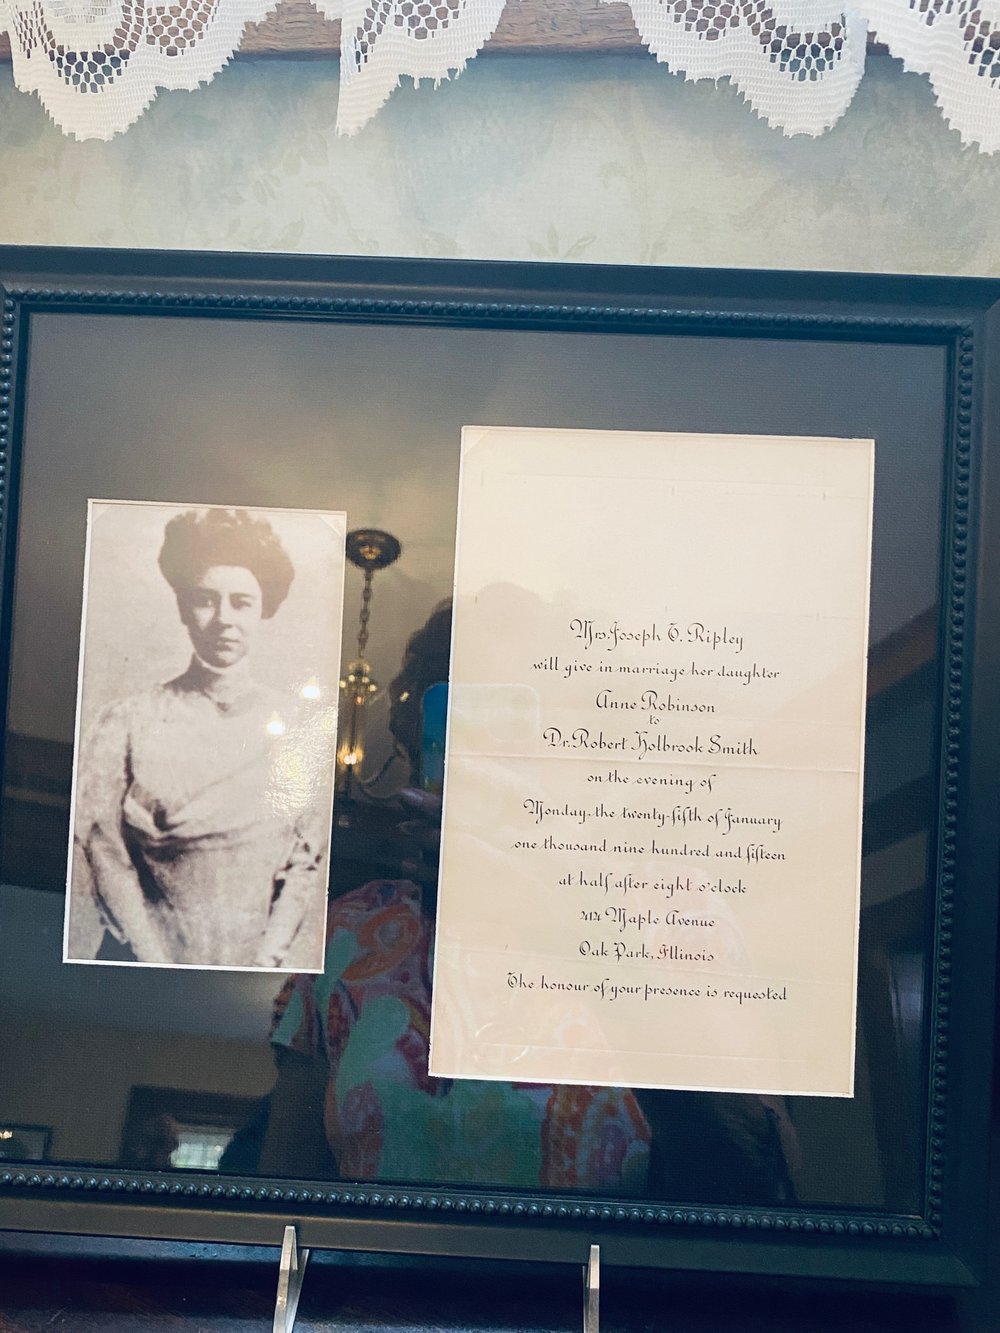 Mrs. Joseph T. Ripley
will give in marriage her daughter
Anne Robinson
to
Dr. Robert Holbrook Smith
on the evening of
Monday, the twenty-fifth of January
one thousand nine hundred and fifteen
at half after eight o'clock
Maple Avenue
Oak Park, Illinois
The honour of your presence is requested